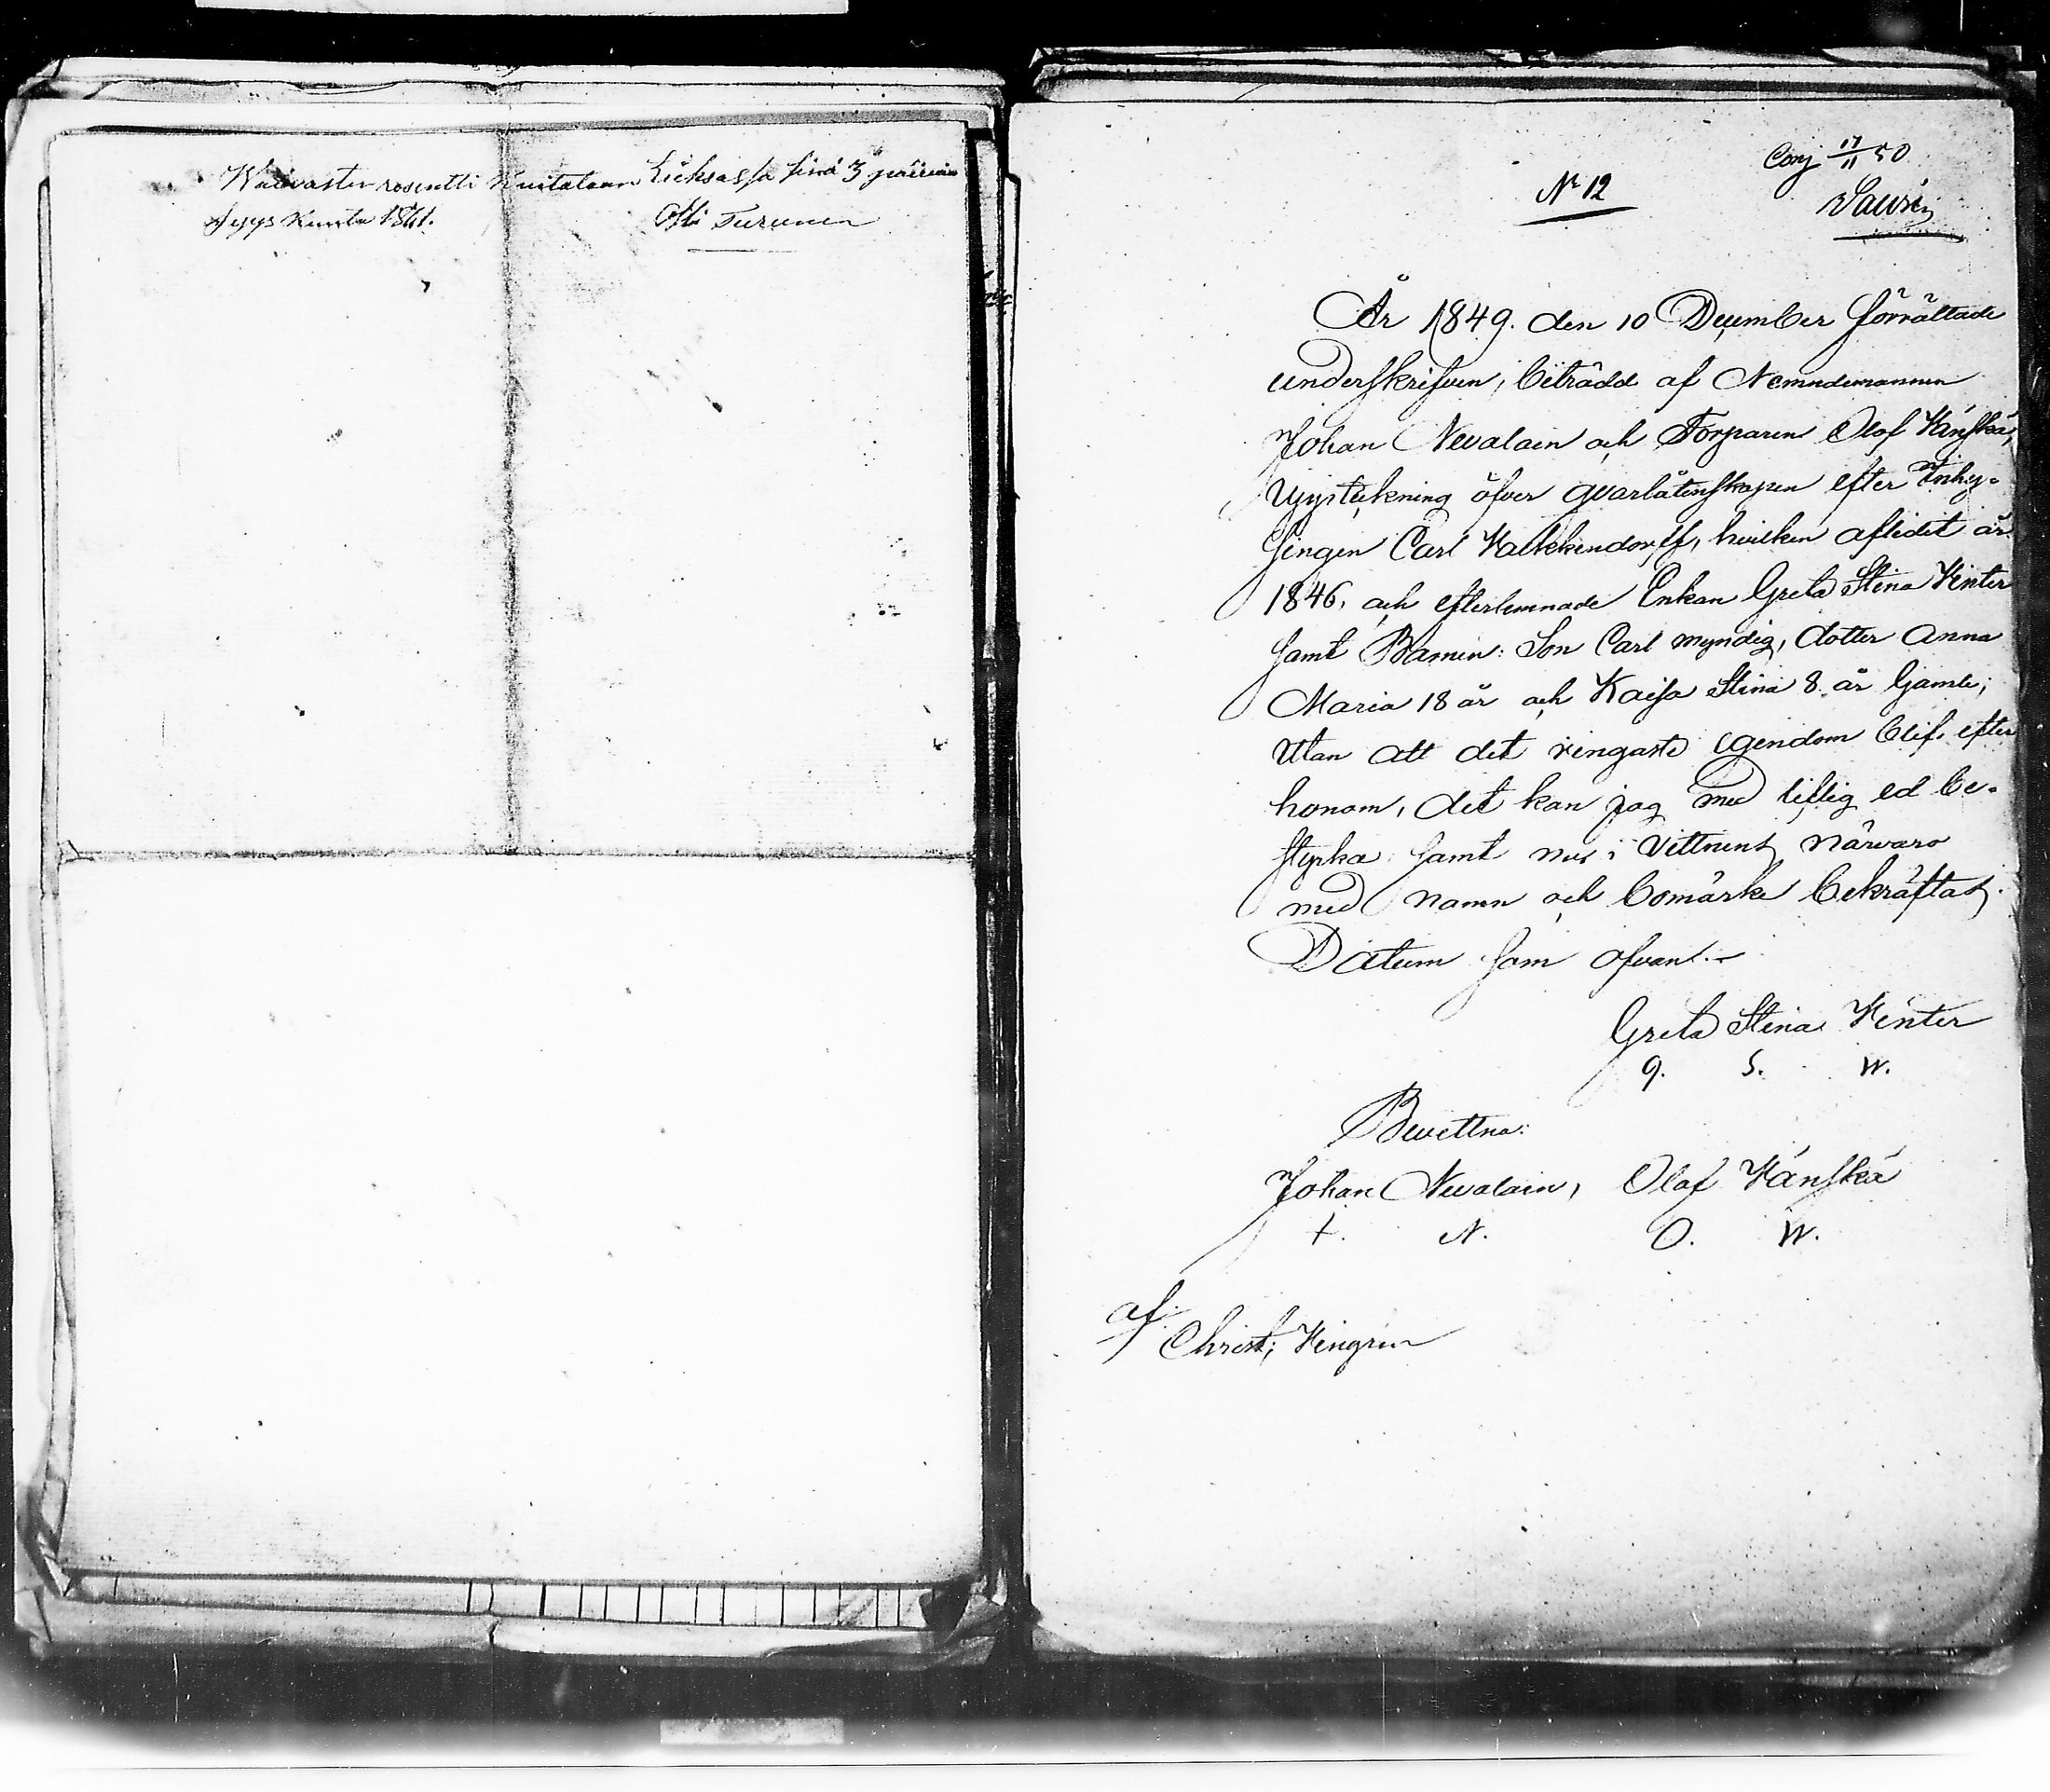 Waivastenrosentti Kuitataan Lieksassa sinä 3 päivänä
Syyskuuta 1861. Otti Turunen
Conj 17/11 50
Nr 12
År 1849. den 10 December förrättade
underskrifven, biträdd af Nemndemannen
Johan Nevalain och Torparen Olof Wänskä,
Uppteckning öfver qvarlåtenskapen efter Inhy-
singen Carl Kalkkendorff, hvilken aflidit år
1846, och efterlemnade Enkan Greta Stina Winter
samt Barnen: Son Carl myndig, dotter Anna
Maria 18 år och Kaisa Stina 8 år Gamle;
Utan att det ringaste egendom blif. efter
honom, det kan jag med liflig ed be-
styrka samt nu i Vittnens närvaro
med namn och bomärke bekräftas.
Datum som ofvan.
Greta Stina Winter
G. S. W.
Bevittna:
Johan Nevalain, Olof Wänskä
+. N. O. W.
af
Christ; Wingren